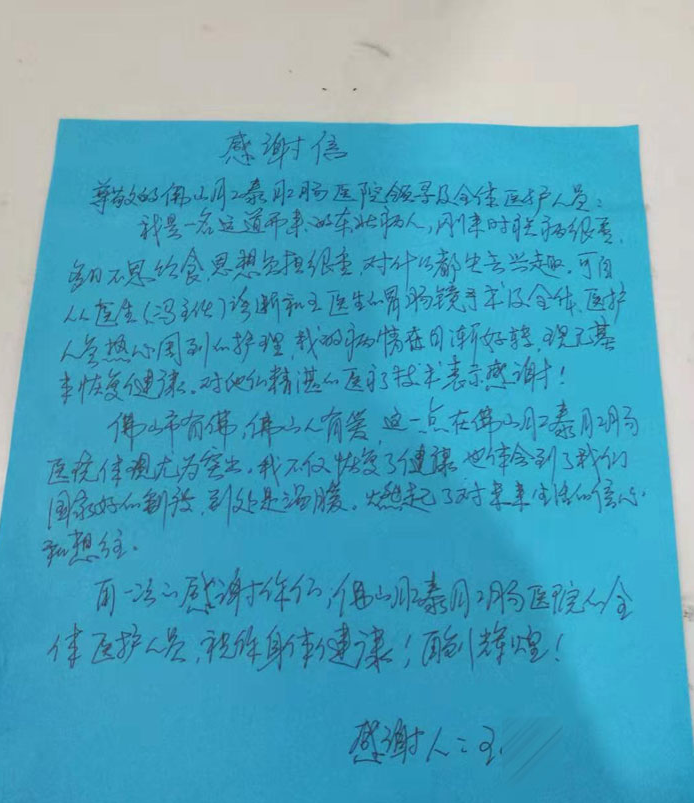 感谢信
尊敬的佛山肛泰肛肠医院领导及全体医护人员：
我是一名远道而来的东北病人，刚来时状病很重，
每日不思饮食，思想负担很重，对什么都失去兴趣。可自
从医生（冯主任）诊断和王医生的胃肠镜手术及全体医护
人员热心周到的护理，我的病情在日渐好转，现已基
本恢复健康。对他们精湛的医疗技术表示感谢！
佛山市有佛，佛山人有爱，这一点在佛山肛泰肛肠
医院体现尤为突出。我不仅恢复了健康也体会到了我们
国家好的制设，到处是温暖。燃起了对未来生活的信心
和想往。
再一次的感谢你们，佛山肛泰肛肠医院的全
体医护人员，祝你身体健康！再创辉煌！
感谢人：王